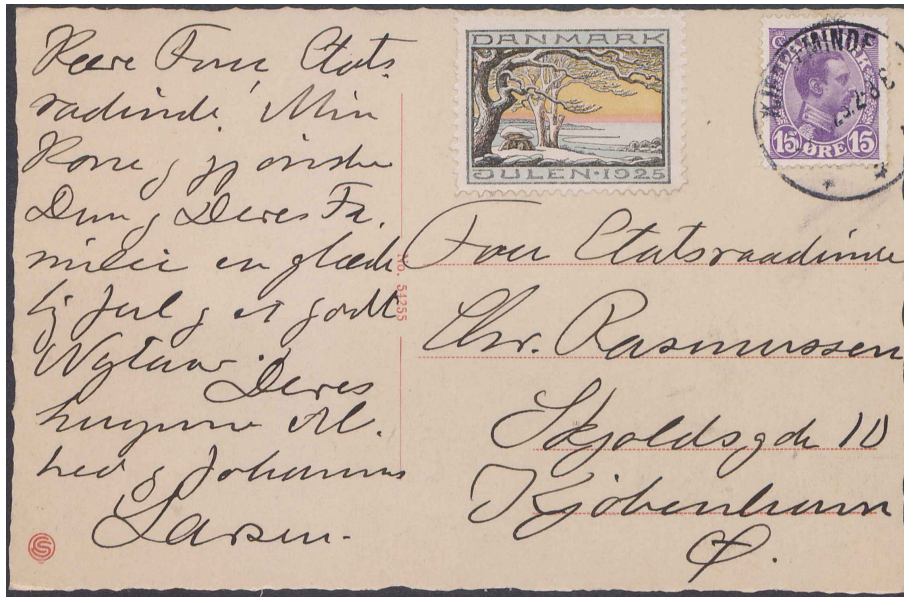 Kære Fru Etats-
raadinde! Min
Kone og jeg ønsker
Dem og Deres Fa-
milie en glæde-
lig Jul og et godt
Nytaar.
Deres
hengivne Al-
hed og Johannes
Larsen.
DANMARK
JULEN·1925
KJERTEMINDE
15 ØRE 15
No. 54255
Fru Etatsraadinde
Chr. Rasmussen
Skjoldsgde 10
Kjøbenhavn
Ø.